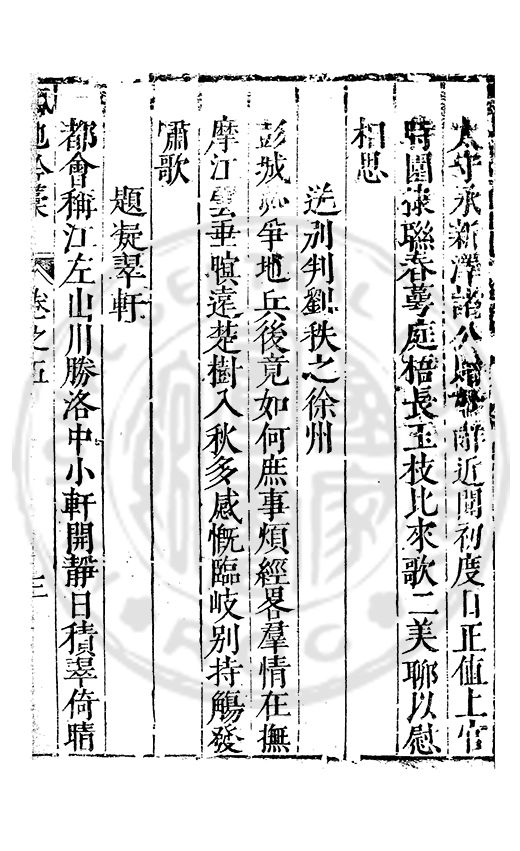 太守承新澤諸公近聞初度日正值上官
時園棣聯春萼庭梧長玉枝比來歌二美聊以慰
相思
送別判劉秩之徐州
彭城爭地兵後竟如何庶事煩經畧羣情在撫
摩江雲垂曉遠楚樹入秋多感慨臨岐别持觴發
嘯歌
題凝翠軒
都會稱江左山川勝洛中小軒開靜日積翠倚晴
池吟藁
卷之五